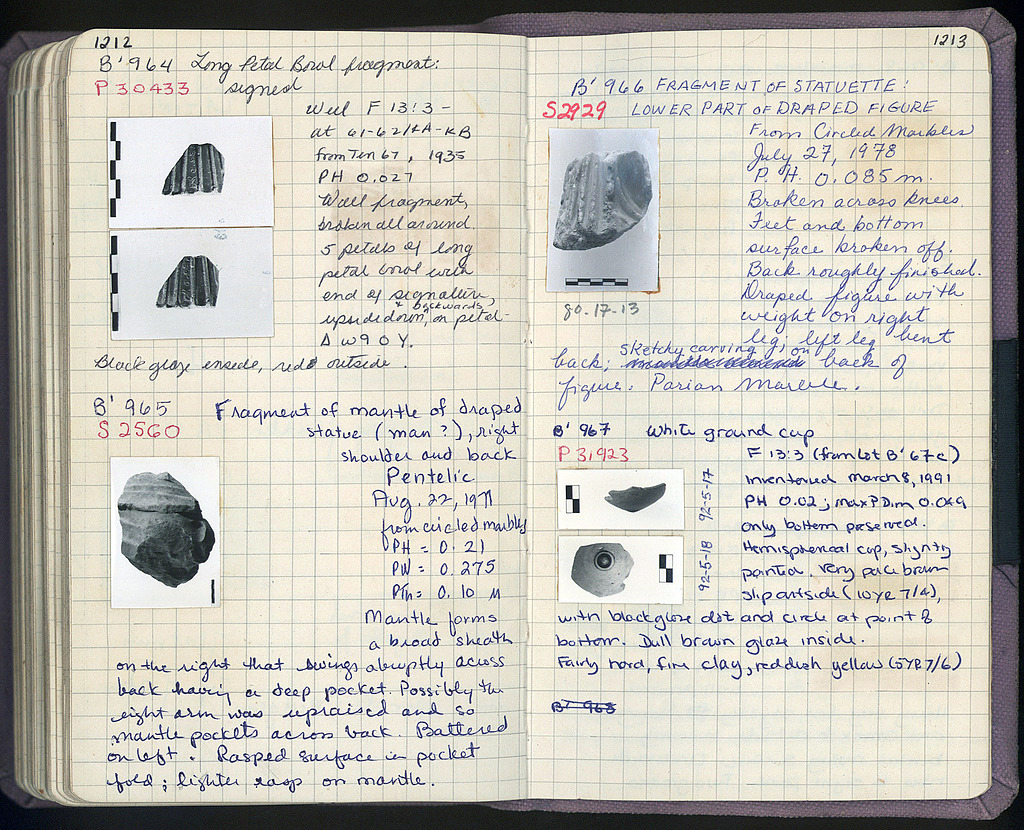 1212
B' 964 Long Petal Bowl fragment:
P 30433 signed
Well F 13:3 -
at 61-62/KA-KB
from Ten 67, 1935
PH 0.027
Wall fragment,
broken all around.
5 petals of long
petal bowl with
end of signature,
upside down, & backwards on petal-
Δ W 9 O Y.
Black glaze inside, red outside.
B' 965 Fragment of mantle of draped
S 2560 statue (man?), right
shoulder and back
Pentelic
Aug. 22, 1971
from circled marbles
PH = 0.21
PW = 0.275
PTh = 0.10 M
Mantle forms
a broad sheath
on the right that swings abruptly across
back having a deep pocket. Possibly the
right arm was upraised and so
mantle pockets across back. Battered
on left. Rasped surface in pocket
fold; lighter rasp on mantle.
1213
B' 966 FRAGMENT OF STATUETTE:
S2929 LOWER PART OF DRAPED FIGURE
From Circled Marbles
July 27, 1978
P. H. 0.085 m.
Broken across knees
Feet and bottom
surface broken off.
Back roughly finished.
Draped figure with
weight on right
leg; left leg bent
back; sketchy carving on back of
figure. Parian Marble.
80-17-13
B' 967 White ground cup
P 31923 F 13:3 (from Lot B' 67c)
Inventoried March 8, 1991
PH 0.02; max P Dim 0.049
only bottom preserved.
Hemispherical cup, slightly
pointed. Very pale brown
slip outside (10YR 7/4),
with black glaze dot and circle at point of
bottom. Dull brown glaze inside.
Fairly hard, fine clay, reddish yellow (5YR 7/6)
92-5-17
92-5-18
B' 968